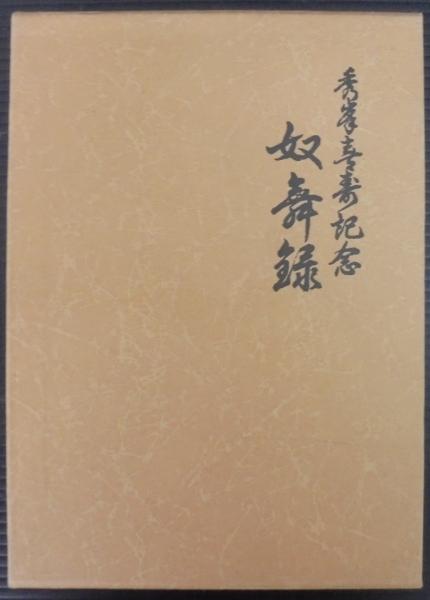 秀峯喜寿記念
奴舞録